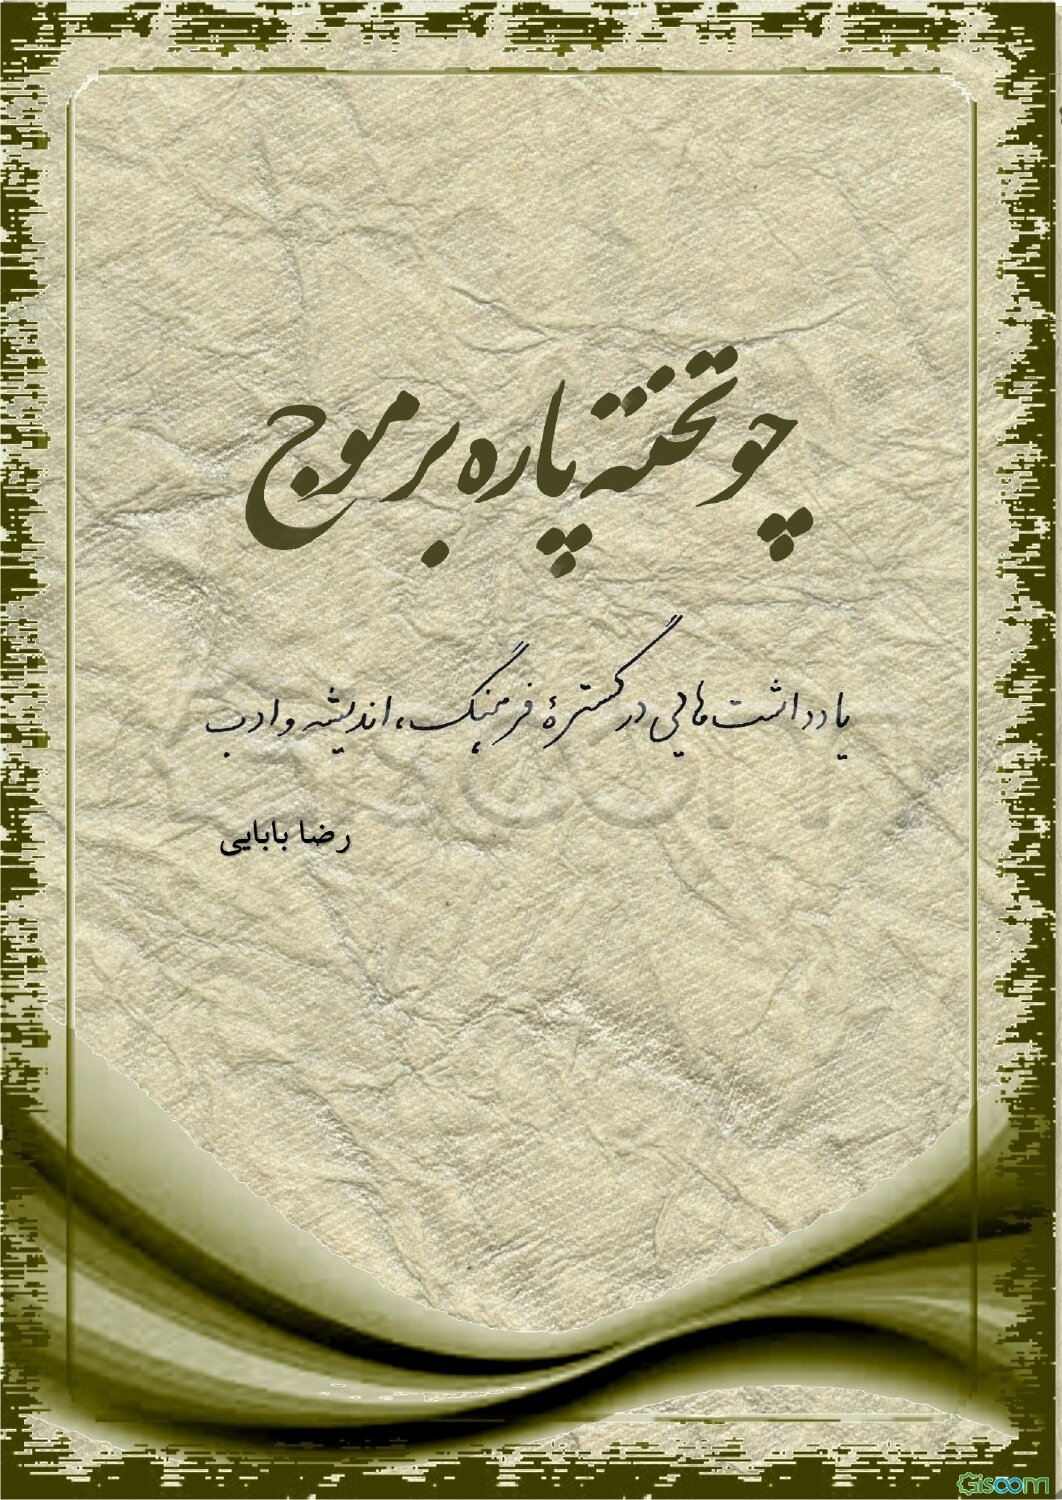 چو تخته پاره بر موج
یادداشت‌هایی در گسترهٔ فرهنگ، اندیشه و ادب
رضا بابایی
Gisoom